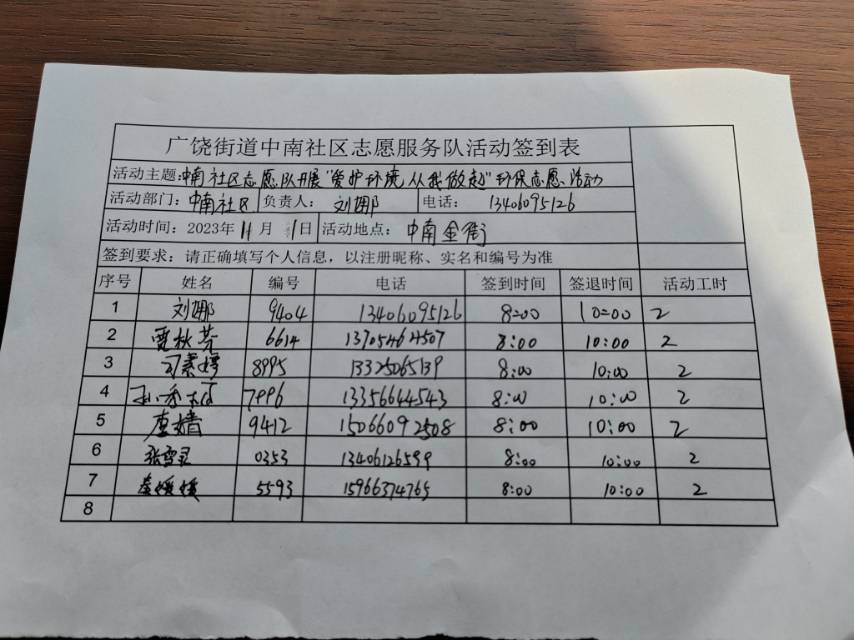 广饶街道中南社区志愿服务队活动签到表
活动主题:中南社区志愿队开展"爱护环境从我做起"环保志愿活动
活动部门:中南社区 负责人: 刘娜 电话: 13406095126
活动时间: 2023年11月 1日 活动地点: 中南金街
签到要求: 请正确填写个人信息，以注册昵称、实名和编号为准
序号 姓名 编号 电话 签到时间 签退时间 活动工时
1 刘娜 9404 13406095126 8:00 10:00 2
2 贾秋芬 6614 13705464507 8:00 10:00 2
3 8995 13325065139 8:00 10:00 2
4 7996 13356644543 8:00 10:00 2
5 唐婧 9412 15066092508 8:00 10:00 2
6 张雪灵 0353 13406126599 8:00 10:00 2
7 秦媛媛 5593 15966374765 8:00 10:00 2
8